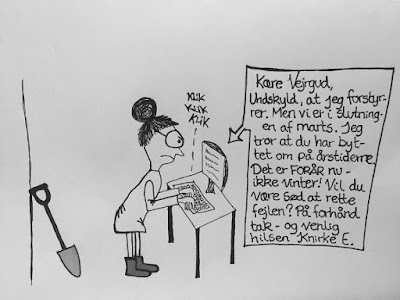 KLIK
KLIK
KLIK
Kære Vejrgud,
Undskyld, at jeg forstyr-
rer. Men vi er i slutning-
en af marts. Jeg
tror at du har byt-
tet om på årstiderne.
Det er FORÅR nu -
ikke vinter! Vil du
være sød at rette
fejlen? På forhånd
tak - og venlig
hilsen Knirke E.